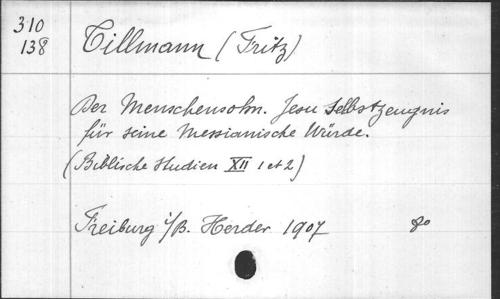 310
138
Tillmann (Fritz)
Der Menschensohn. Jesu Selbstzeugnis
für seine Messianische Würde.
(Biblische Studien XII 1 et 2)
Freiburg i/B. Herder 1907 8o